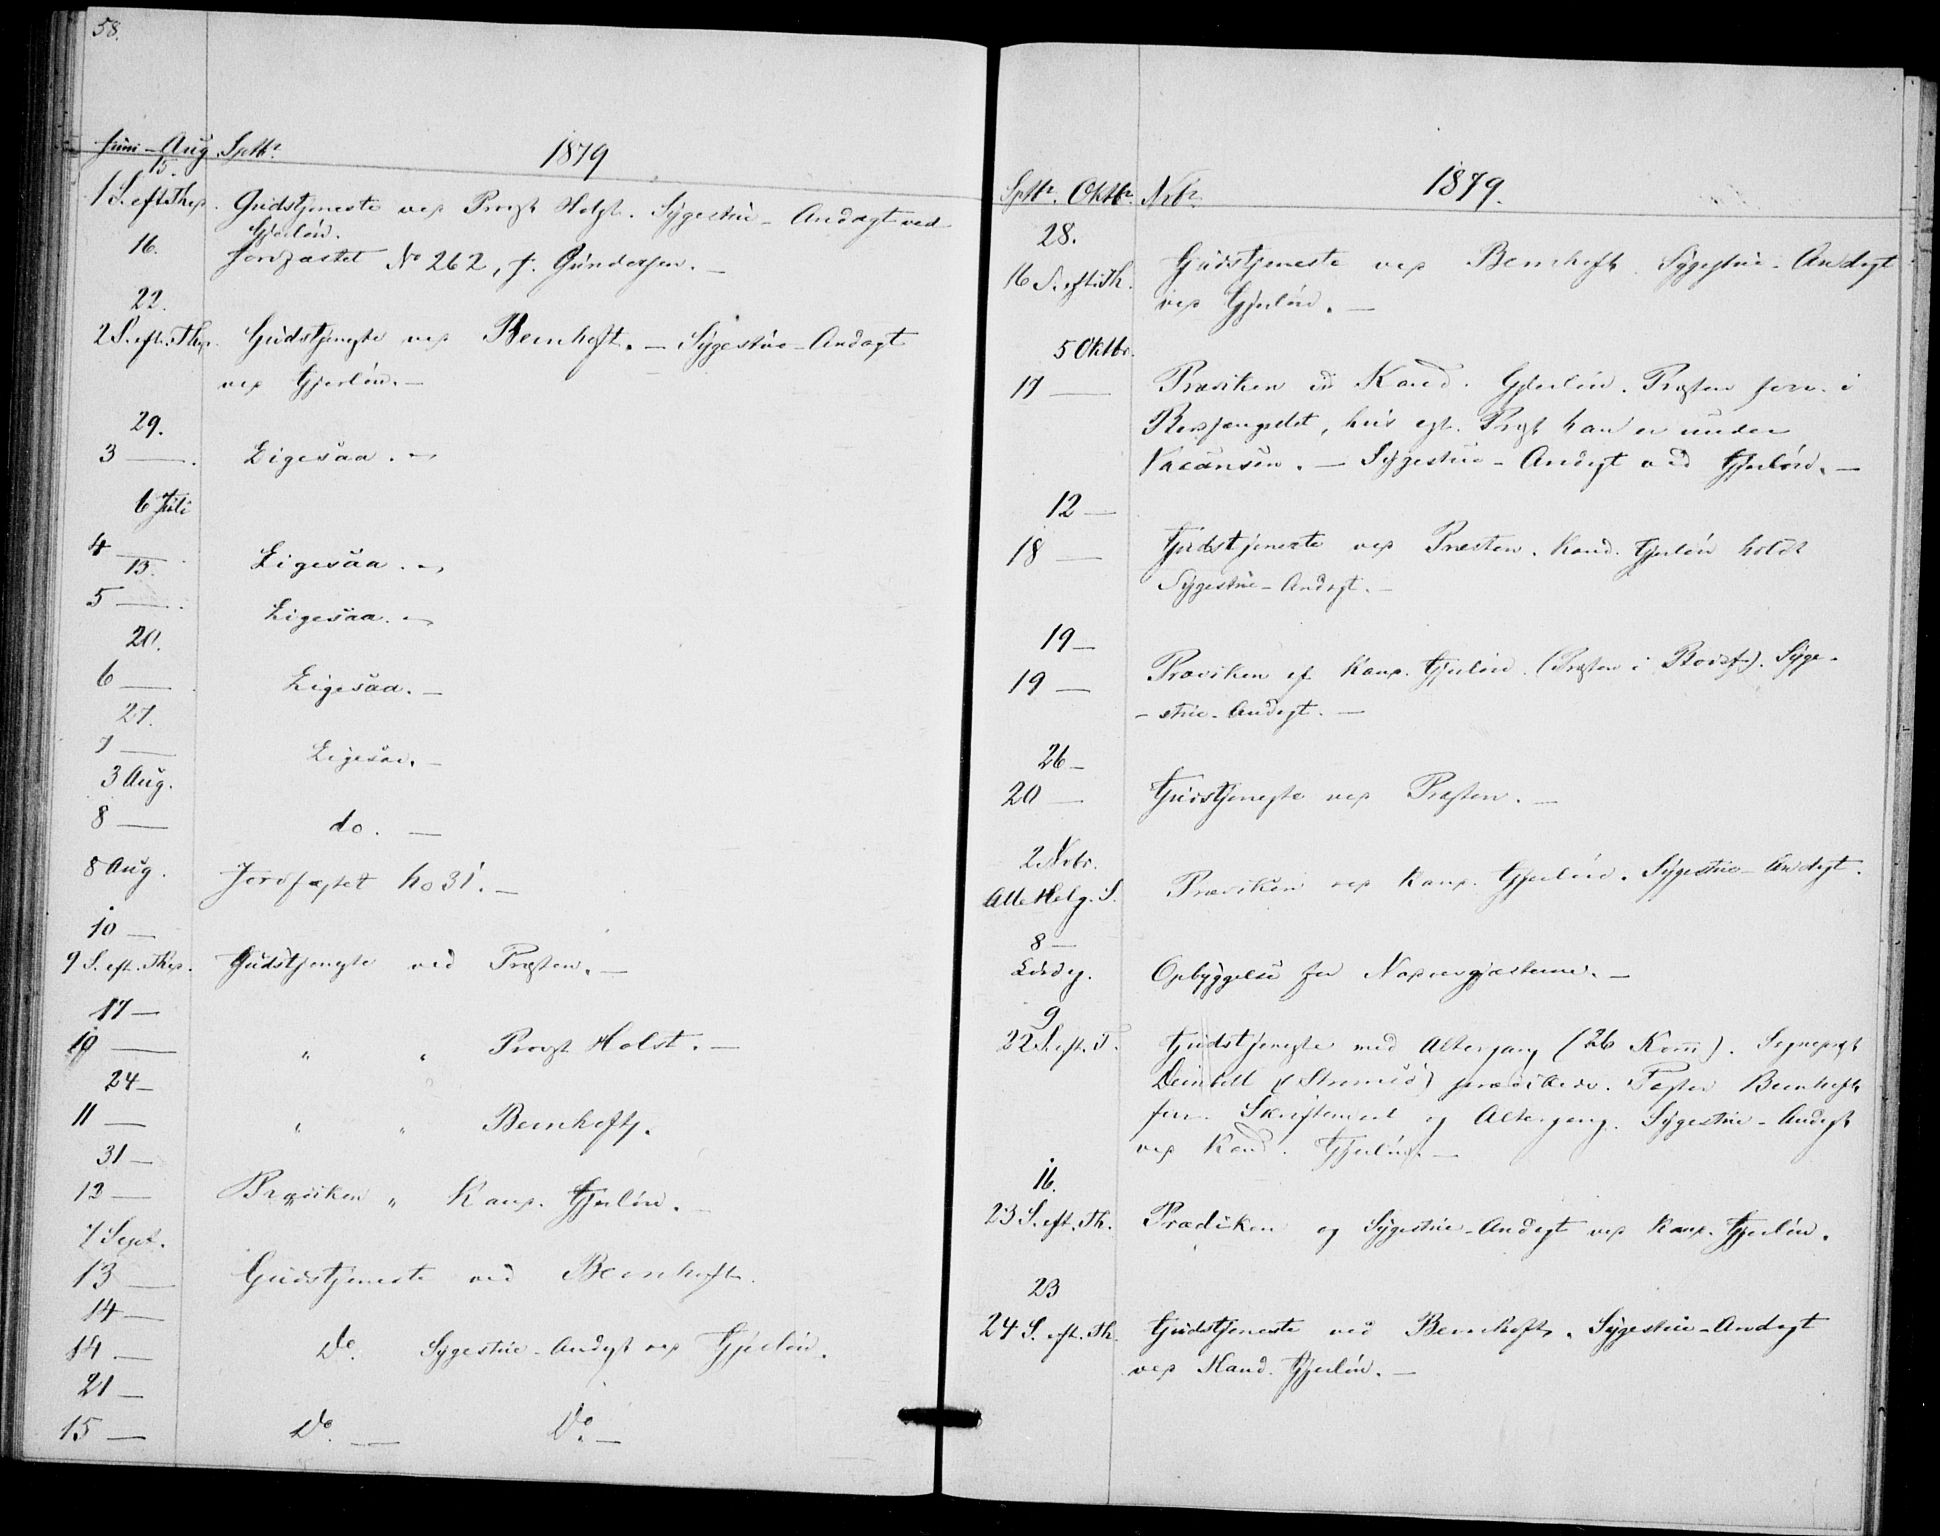 58.
Juni - Aug. Septbr. 1879
15.
1 S. eft. Thep. Gudstjeneste ved Provst Holst. Sygestue - Andagt ved
Gjerløw.
16. Jordfæstet No 262, J. Gundersen. -
22.
2 S. eft. Thep. Gudstjeneste ved Bernhoft. - Sygestue - Andagt
ved Gjerløw. -
29.
3 — . Ligesaa. -
6 Juli
4 — Ligesaa. -
13.
5 — . Ligesaa. -
20.
6 — Ligesaa. -
27.
7 — Ligesaa. -
3 Aug.
8 — do. —
8 Aug. Jordfæstet No 31. -
10 —
9 S. eft. Thep. Gudstjeneste ved Præsten. -
17 —
10 — " " Provst Holst. -
24 —
11 — " " Bernhoft.
31 —
12 — Prædiken " Kand. Gjerløw. -
7 Sept.
13 — Gudstjeneste ved Bernhoft.
14 —
14 — Do. Sygestue - Andagt ved Gjerløw.
21 —
15 — Do. — Do. —
Septbr. Oktbr. Nvbr. 1879.
28.
16 S. eft. Th. Gudstjeneste ved Bernhoft. Sygestue - Andagt
ved Gjerløw. -
5 Oktbr.
17 — Prædiken ved Kand. Gjerløw. Præsten forr. i
Bodsfængselet, hvis Præst han er under
Vacansen. - Sygestue - Andagt ved Gjerløw. -
12 —
18 — Gudstjeneste ved Præsten. Kand. Gjerløw holdt
Sygestue - Andagt. -
19 —
19 — Prædiken af Kand. Gjerløw. (Præsten i Bodsf.). Syge-
- stue - Andagt. -
26 —
20 — Gudstjeneste ved Præsten. -
2 Nvbr.
Alle Helg. S. Prædiken ved Kand. Gjerløw. Sygestue - Andagt.
8 —
Lørdag. Opbyggelse for Nadvergjæsterne. -
9
22 S. eft. T. Gudstjeneste med Altergang (26 Kom). Sognepræst
(Strømsø) prædikede. Bernhoft
forr. Skriftemaal og Altergang. Sygestue - Andagt
ved Kand. Gjerløw. -
16.
23 S. eft. Th. Prædiken og Sygestue - Andagt ved Kand. Gjerløw.
23
24 S. eft. Th. Gudstjeneste ved Bernhoft. Sygestue - Andagt
ved Kand. Gjerløw. -